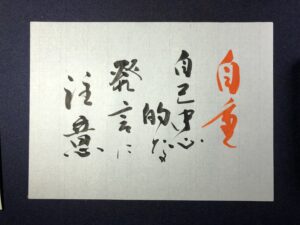 自重
自己中心
的な
發言に
注意